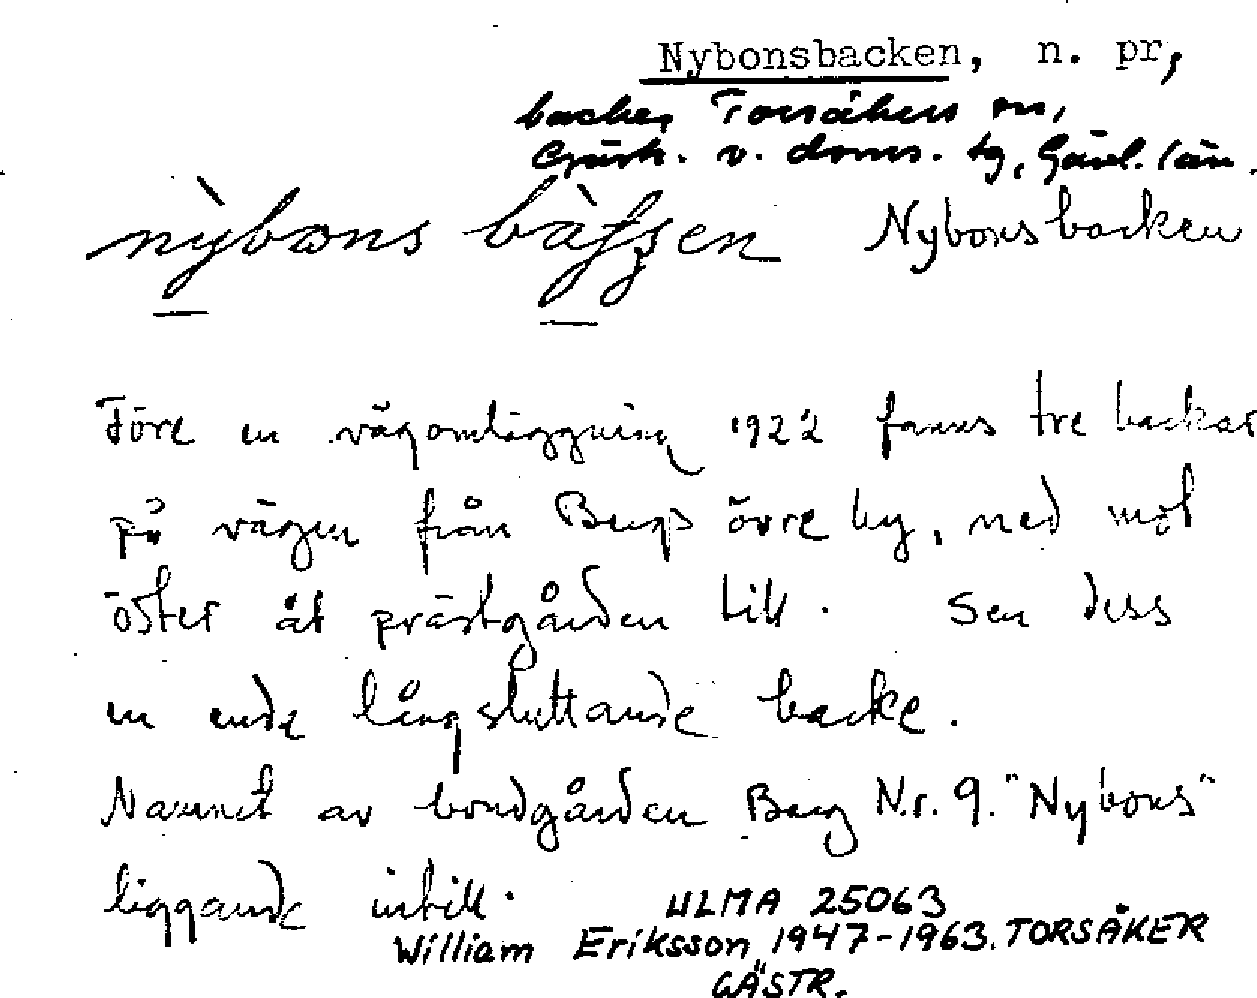 Nybonsbacken, n. pr,
backe, Torsåkers sn,
Gästr. v. doms. tg, Gävl. län.
Nybonsbacken
Före en vägomläggning 1922 fanns tre backar
på vägen från Bergs övre by, ned mot
öster åt prästgården till. Sen dess
en enda långsluttande backe.
Namnet av bondgården Berg N.r. 9. "Nybons"
liggande intill.
ULMA 25063
William Eriksson 1947-1963. TORSÅKER
GÄSTR.